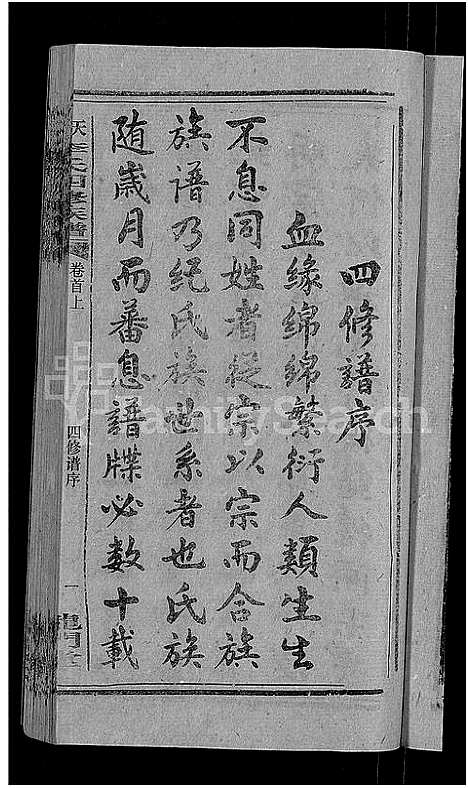 四修譜序
血缘绵绵繁衍人類生生
不息同姓者從宗以宗而合族
族谱乃纪氏族世系者也氏族
随歲月而蕃息譜牒必数十載
族譜
卷首上
四修谱序
一
FamilySearch